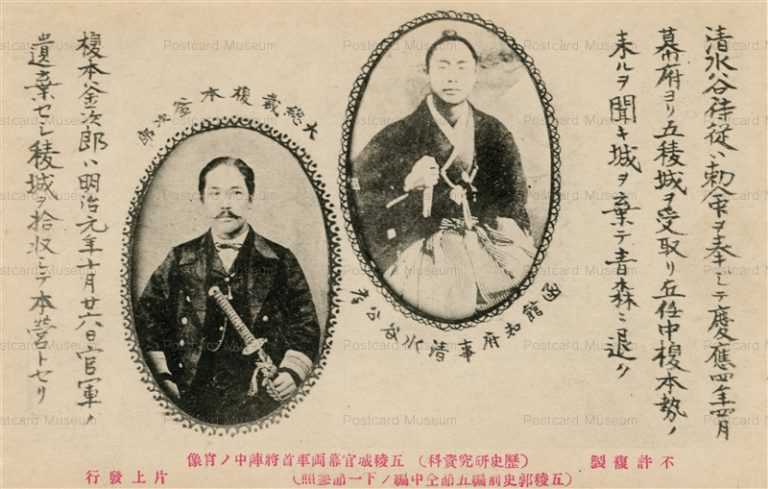 清水谷侍従ハ勅命ヲ奉ジテ慶應四年四月
幕府ヨリ五稜城ヲ受取リ在任中榎本勢ノ
来ルヲ聞キ城ヲ棄テ青森ニ退ク
函館知府事清水谷公考
大総裁榎本釜次郎
榎本釜次郎ハ明治元年十月廿六日官軍ノ
遺棄セシ稜城ヲ拾収シテ本営トセリ
不許複製
(歴史研究資料) 五稜城官幕両軍首将陣中ノ肖像
(五稜郭史前編五節仝中編ノ下一節参照)
片上發行
Postcard Museum